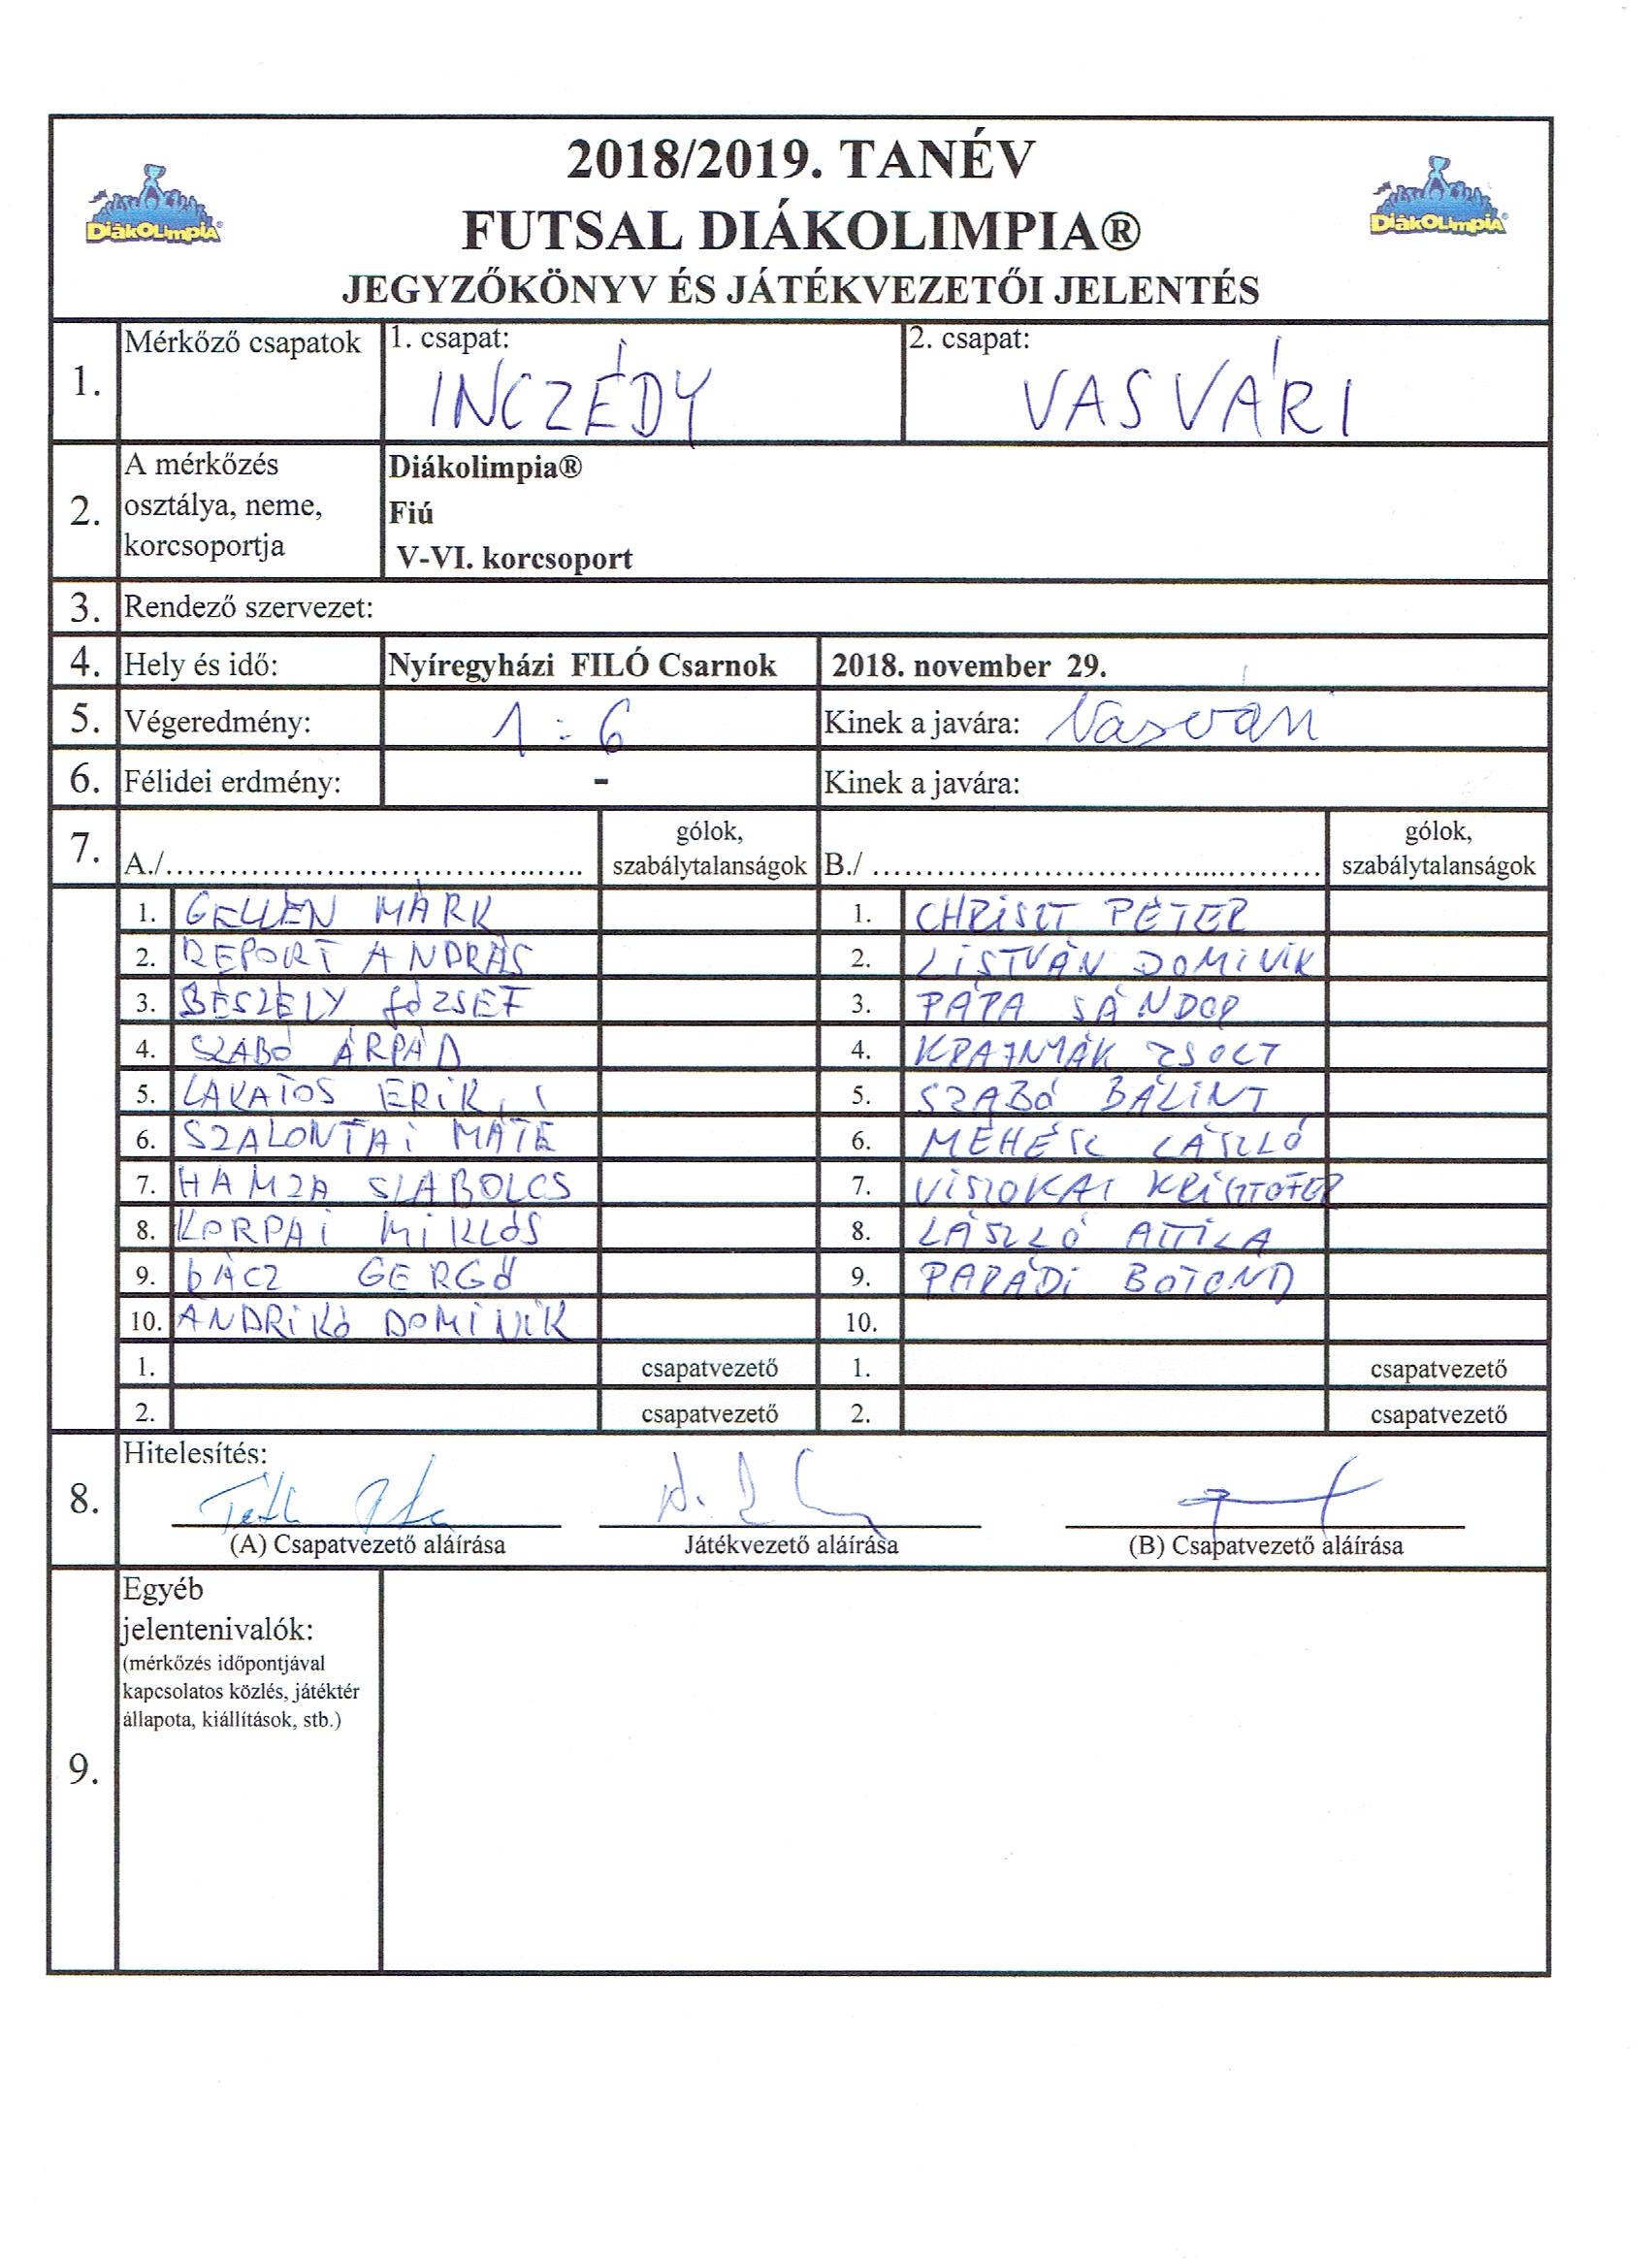 2018/2019. TANÉV
FUTSAL DIÁKOLIMPIA®
JEGYZŐKÖNYV ÉS JÁTÉKVEZETŐI JELENTÉS
DiákOLimpiA
DiákOLimpiA
1. Mérkőző csapatok 1. csapat: INCZÉDY 2. csapat: VASVÁRI
2. A mérkőzés osztálya, neme, korcsoportja
Diákolimpia®
Fiú
V-VI. korcsoport
3. Rendező szervezet:
4. Hely és idő: Nyíregyházi FILÓ Csarnok 2018. november 29.
5. Végeredmény: 1:6 Kinek a javára: Vasvári
6. Félidei erdmény: - Kinek a javára:
7. A./ gólok, szabálytalanságok B./ gólok, szabálytalanságok
1. GELLÉN MÁRK 1. CHRISZT PÉTER
2. REPORT ANDRÁS 2. LISTVÁN DOMINIK
3. BESZÉLY JÓZSEF 3. PAPA SÁNDOR
4. SZABÓ ÁRPÁD 4. KRAJNYÁK ZSOLT
5. LAKATOS ERIK 5. SZABÓ BÁLINT
6. SZALONTAI MÁTÉ 6. MÉHÉSZ LÁSZLÓ
7. HAMZA SZABOLCS 7. VISZOKAI KRISZTOFER
8. KORPAI MIKLÓS 8. LÁSZLÓ ATTILA
9. GERGŐ 9. PARÁDI BOTOND
10. ANDRIKÓ DOMINIK 10.
1. csapatvezető 1. csapatvezető
2. csapatvezető 2. csapatvezető
8. Hitelesítés:
Tóth
(A) Csapatvezető aláírása Játékvezető aláírása (B) Csapatvezető aláírása
9. Egyéb
jelentenivalók:
(mérkőzés időpontjával
kapcsolatos közlés, játéktér
állapota, kiállítások, stb.)